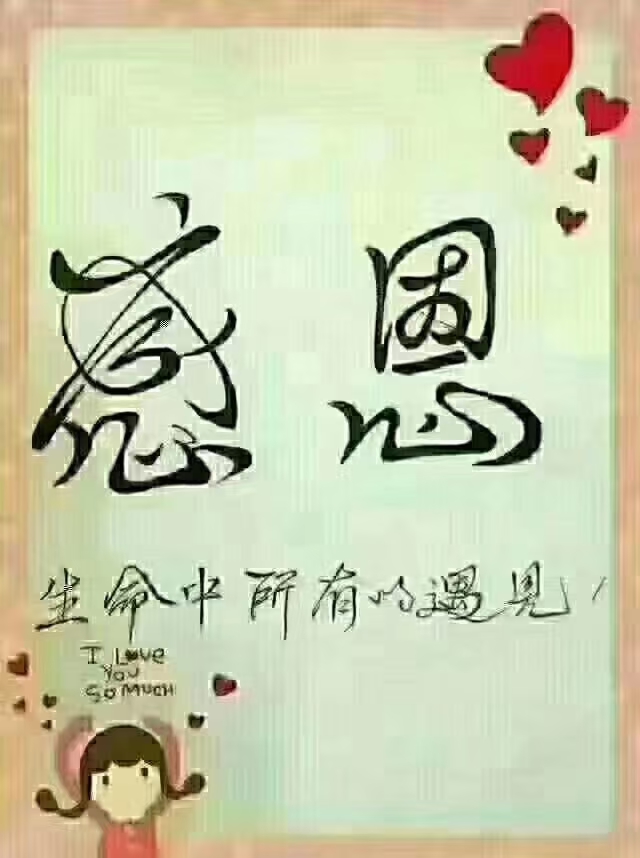 感恩
生命中所有的遇见!
I Love
You
So MUCH